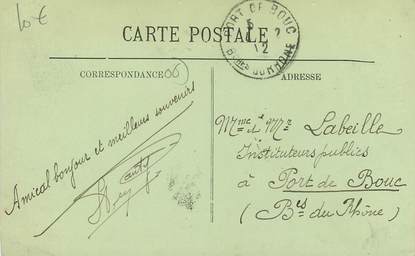 10€
CARTE POSTALE
PORT DE BOUC
12
Bches DU RHONE
CORRESPONDANCE
ADRESSE
Amical bonjour et meilleurs souvenirs
Mme et Mr Labeille
Instituteurs publics
à Port de Bouc
(Bes du Rhône)